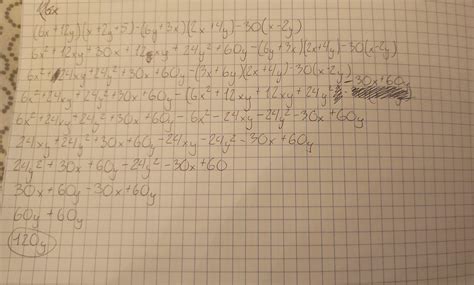 (6x+12y)(x+2y+5)-(6y+3x)(2x+4y)-30(x-2y)
6x²+12xy+30x+12xy+24y²+60y-(6y+3x)(2x+4y)-30(x-2y)
6x²+24xy+24y²+30x+60y-(3x+6y)(2x+4y)-30(x-2y)
6x²+24xy+24y²+30x+60y-(6x²+12xy+12xy+24y²)-30x+60y
6x²+24xy+24y²+30x+60y-6x²-24xy-24y²-30x+60y
24xy+24y²+30x+60y-24xy-24y²-30x+60y
24y²+30x+60y-24y²-30x+60
30x+60y-30x+60y
60y+60y
120y